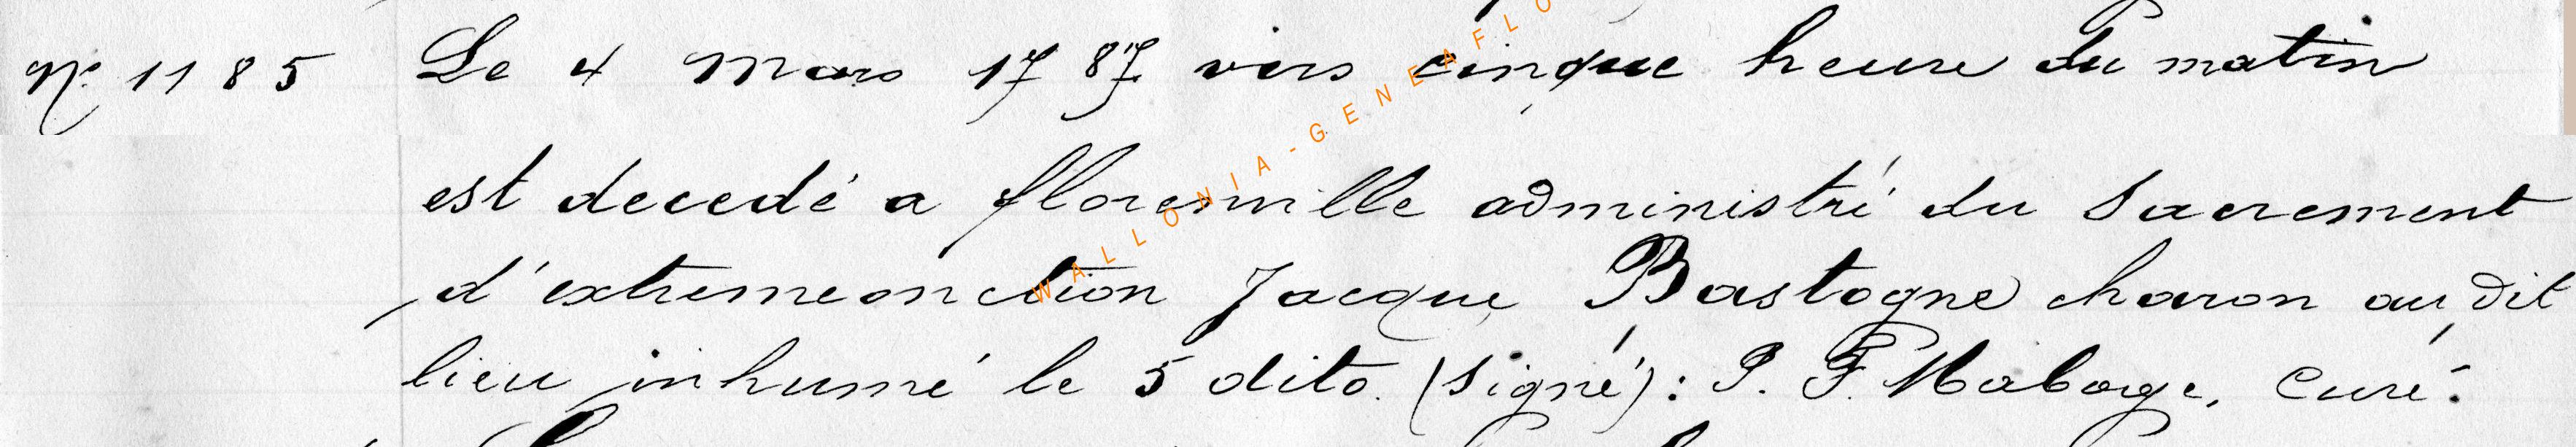 N° 1185 Le 4 Mars 1787 vers cinque heure du matin
est decedé a florenville administré du Sacrement
d'extremeonction Jacque Bastogne charon au dit
lieu inhumé le 5 dito. (signé): P. F. Maboge, Curé.
WALLONIA-GENEAFLO